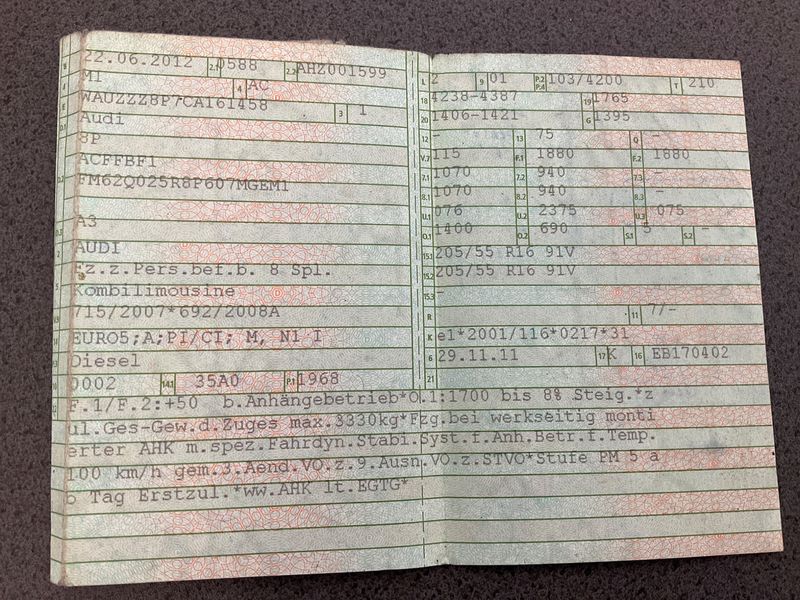 22.06.2012 2.1 0588 2.2 AHZ001599
M1 4 AC
WAUZZZ8P7CA161458 3 1
Audi
8P
ACFFBF1
FM62Q025R8P607MGEM1
A3
AUDI
Fz.z.Pers.bef.b. 8 Spl.
Kombilimousine
715/2007*692/2008A
EURO5;A;PI/CI; M, N1 I
Diesel
0002 14.1 35A0 P.1 1968
L 2 9 01 P.2 P.4 103/4200 T 210
18 4238-4387 19 1765
20 1406-1421 G 1395
12 - 13 75 Q -
V.7 115 F.1 1880 F.2 1880
7.1 1070 7.2 940 7.3 -
8.1 1070 8.2 940 8.3 -
U.1 076 U.2 2375 U.3 075
O.1 1400 O.2 690 S.1 5 S.2 -
15.1 205/55 R16 91V
15.2 205/55 R16 91V
15.3 -
R 11 7/-
K e1*2001/116*0217*31
6 29.11.11 17 K 16 EB170402
21
F.1/F.2:+50 b.Anhängebetrieb*O.1:1700 bis 8% Steig.*z
ul.Ges-Gew.d.Zuges max.3330kg*Fzg.bei werkseitig monti
erter AHK m.spez.Fahrdyn.Stabi.Syst.f.Anh.Betr.f.Temp.
100 km/h gem.3.Aend.VO.z.9.Ausn.VO.z.STVO*Stufe PM 5 a
b Tag Erstzul.*ww.AHK lt.EGTG*